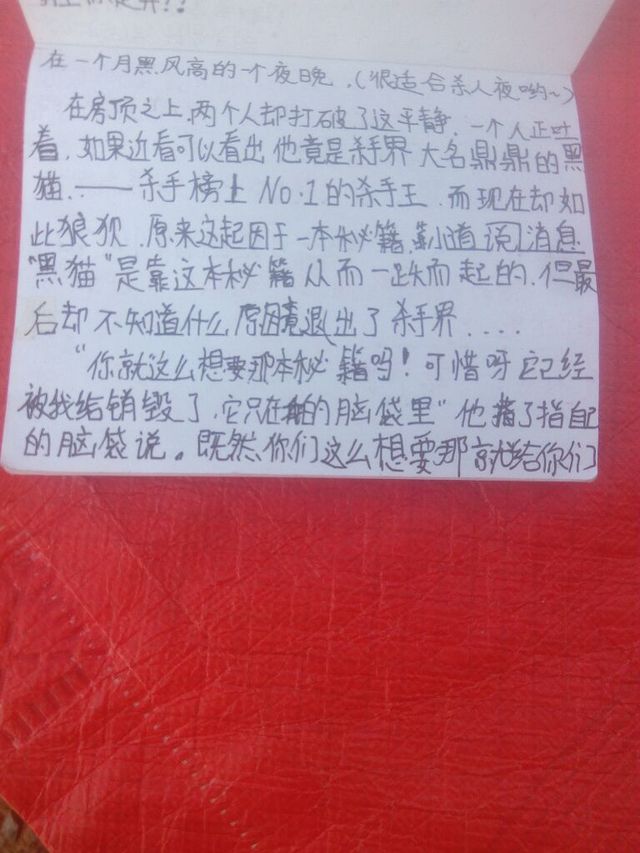 在一个月黑风高的一个夜晚.(很适合杀人夜哟~)
在房顶之上,两个人却打破了这平静.一个人正吐
着.如果近看可以看出他竟是杀手界大名鼎鼎的黑
猫.——杀手榜上No.1的杀手王.而现在却如
此狼狈.原来这起因于一本秘籍.小道消息
"黑猫"是靠这本秘籍从而一跃而起的.但最
后却不知道什么原因竟退出了杀手界....
"你就这么想要那本秘籍吗!可惜呀它已经
被我给销毁了.它只在我的脑袋里"他指了指自己
的脑袋说。既然你们这么想要那就给你们